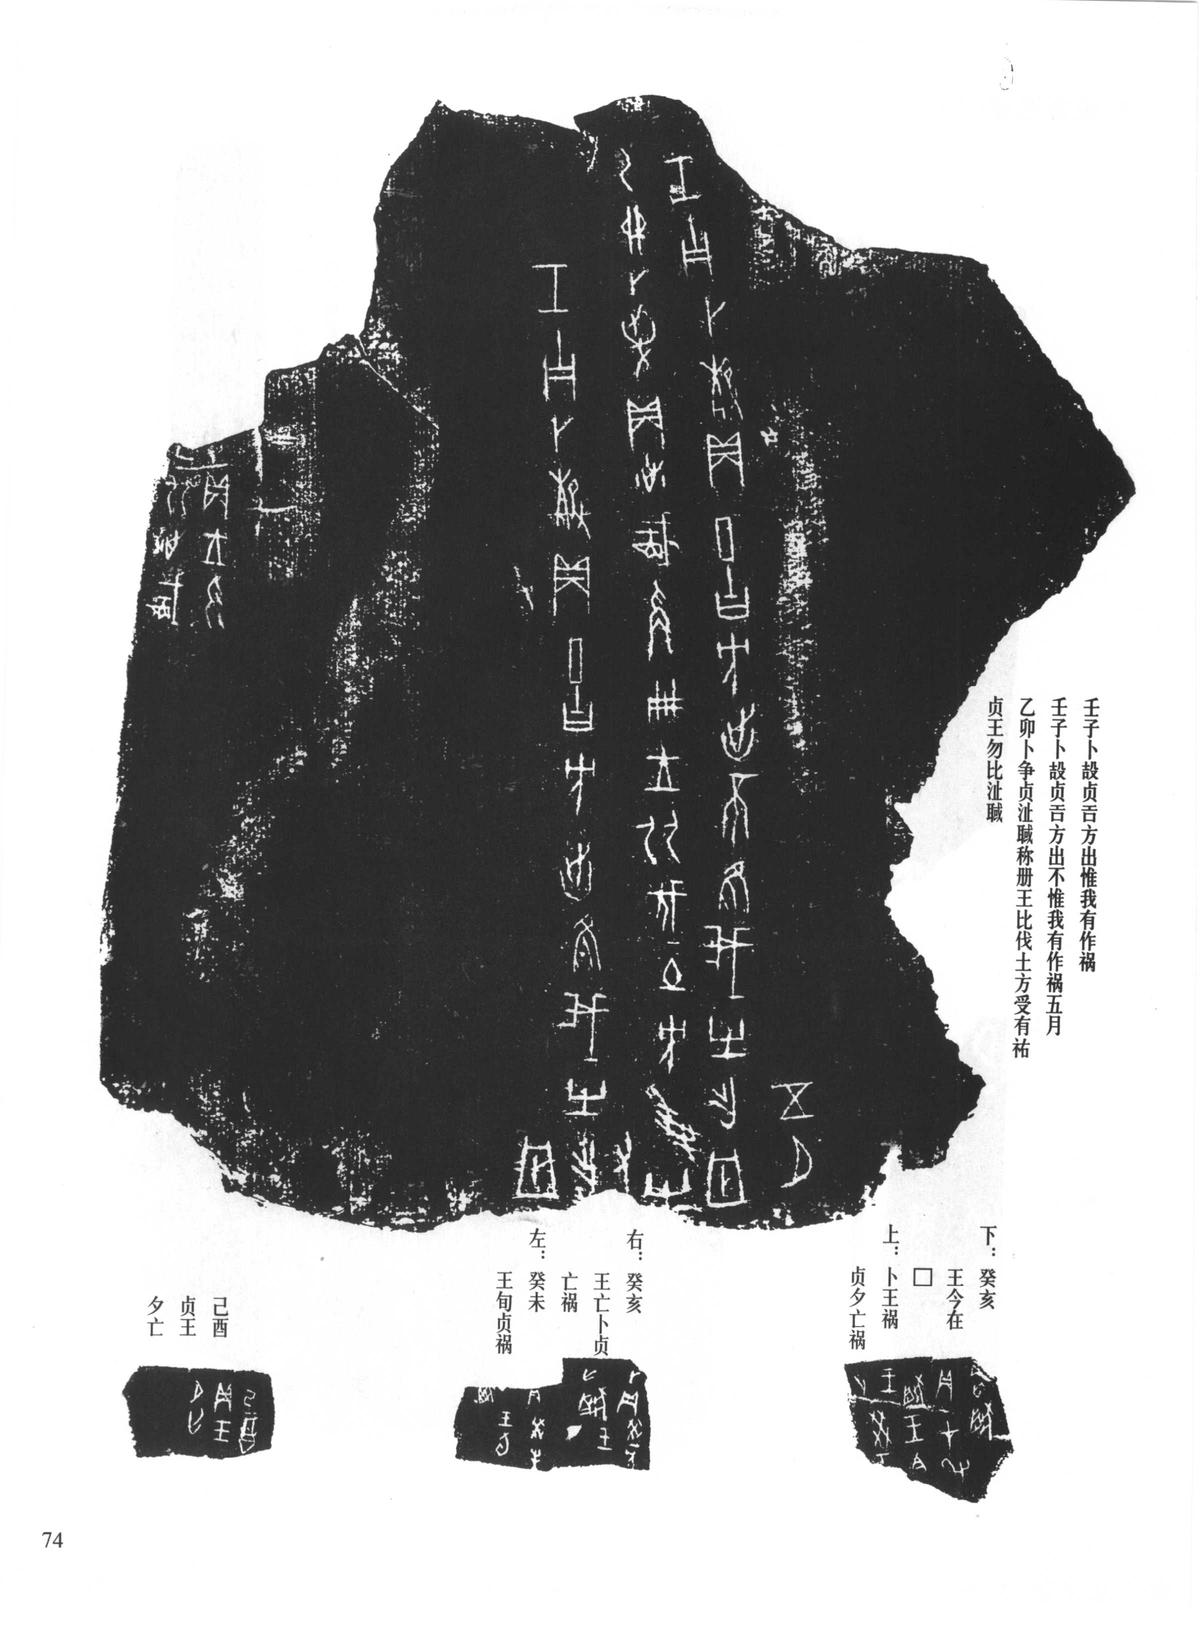 壬子卜㱿贞𢀛方出惟我有作祸
壬子卜㱿贞𢀛方出不惟我有作祸五月
乙卯卜争贞沚聝称册王比伐土方受有祐
贞王勿比沚聝
下：癸亥
王今在
□
上：卜王祸
贞夕亡祸
右：癸亥
王亡卜贞
亡祸
左：癸未
王旬贞祸
己酉
贞王
夕亡
74